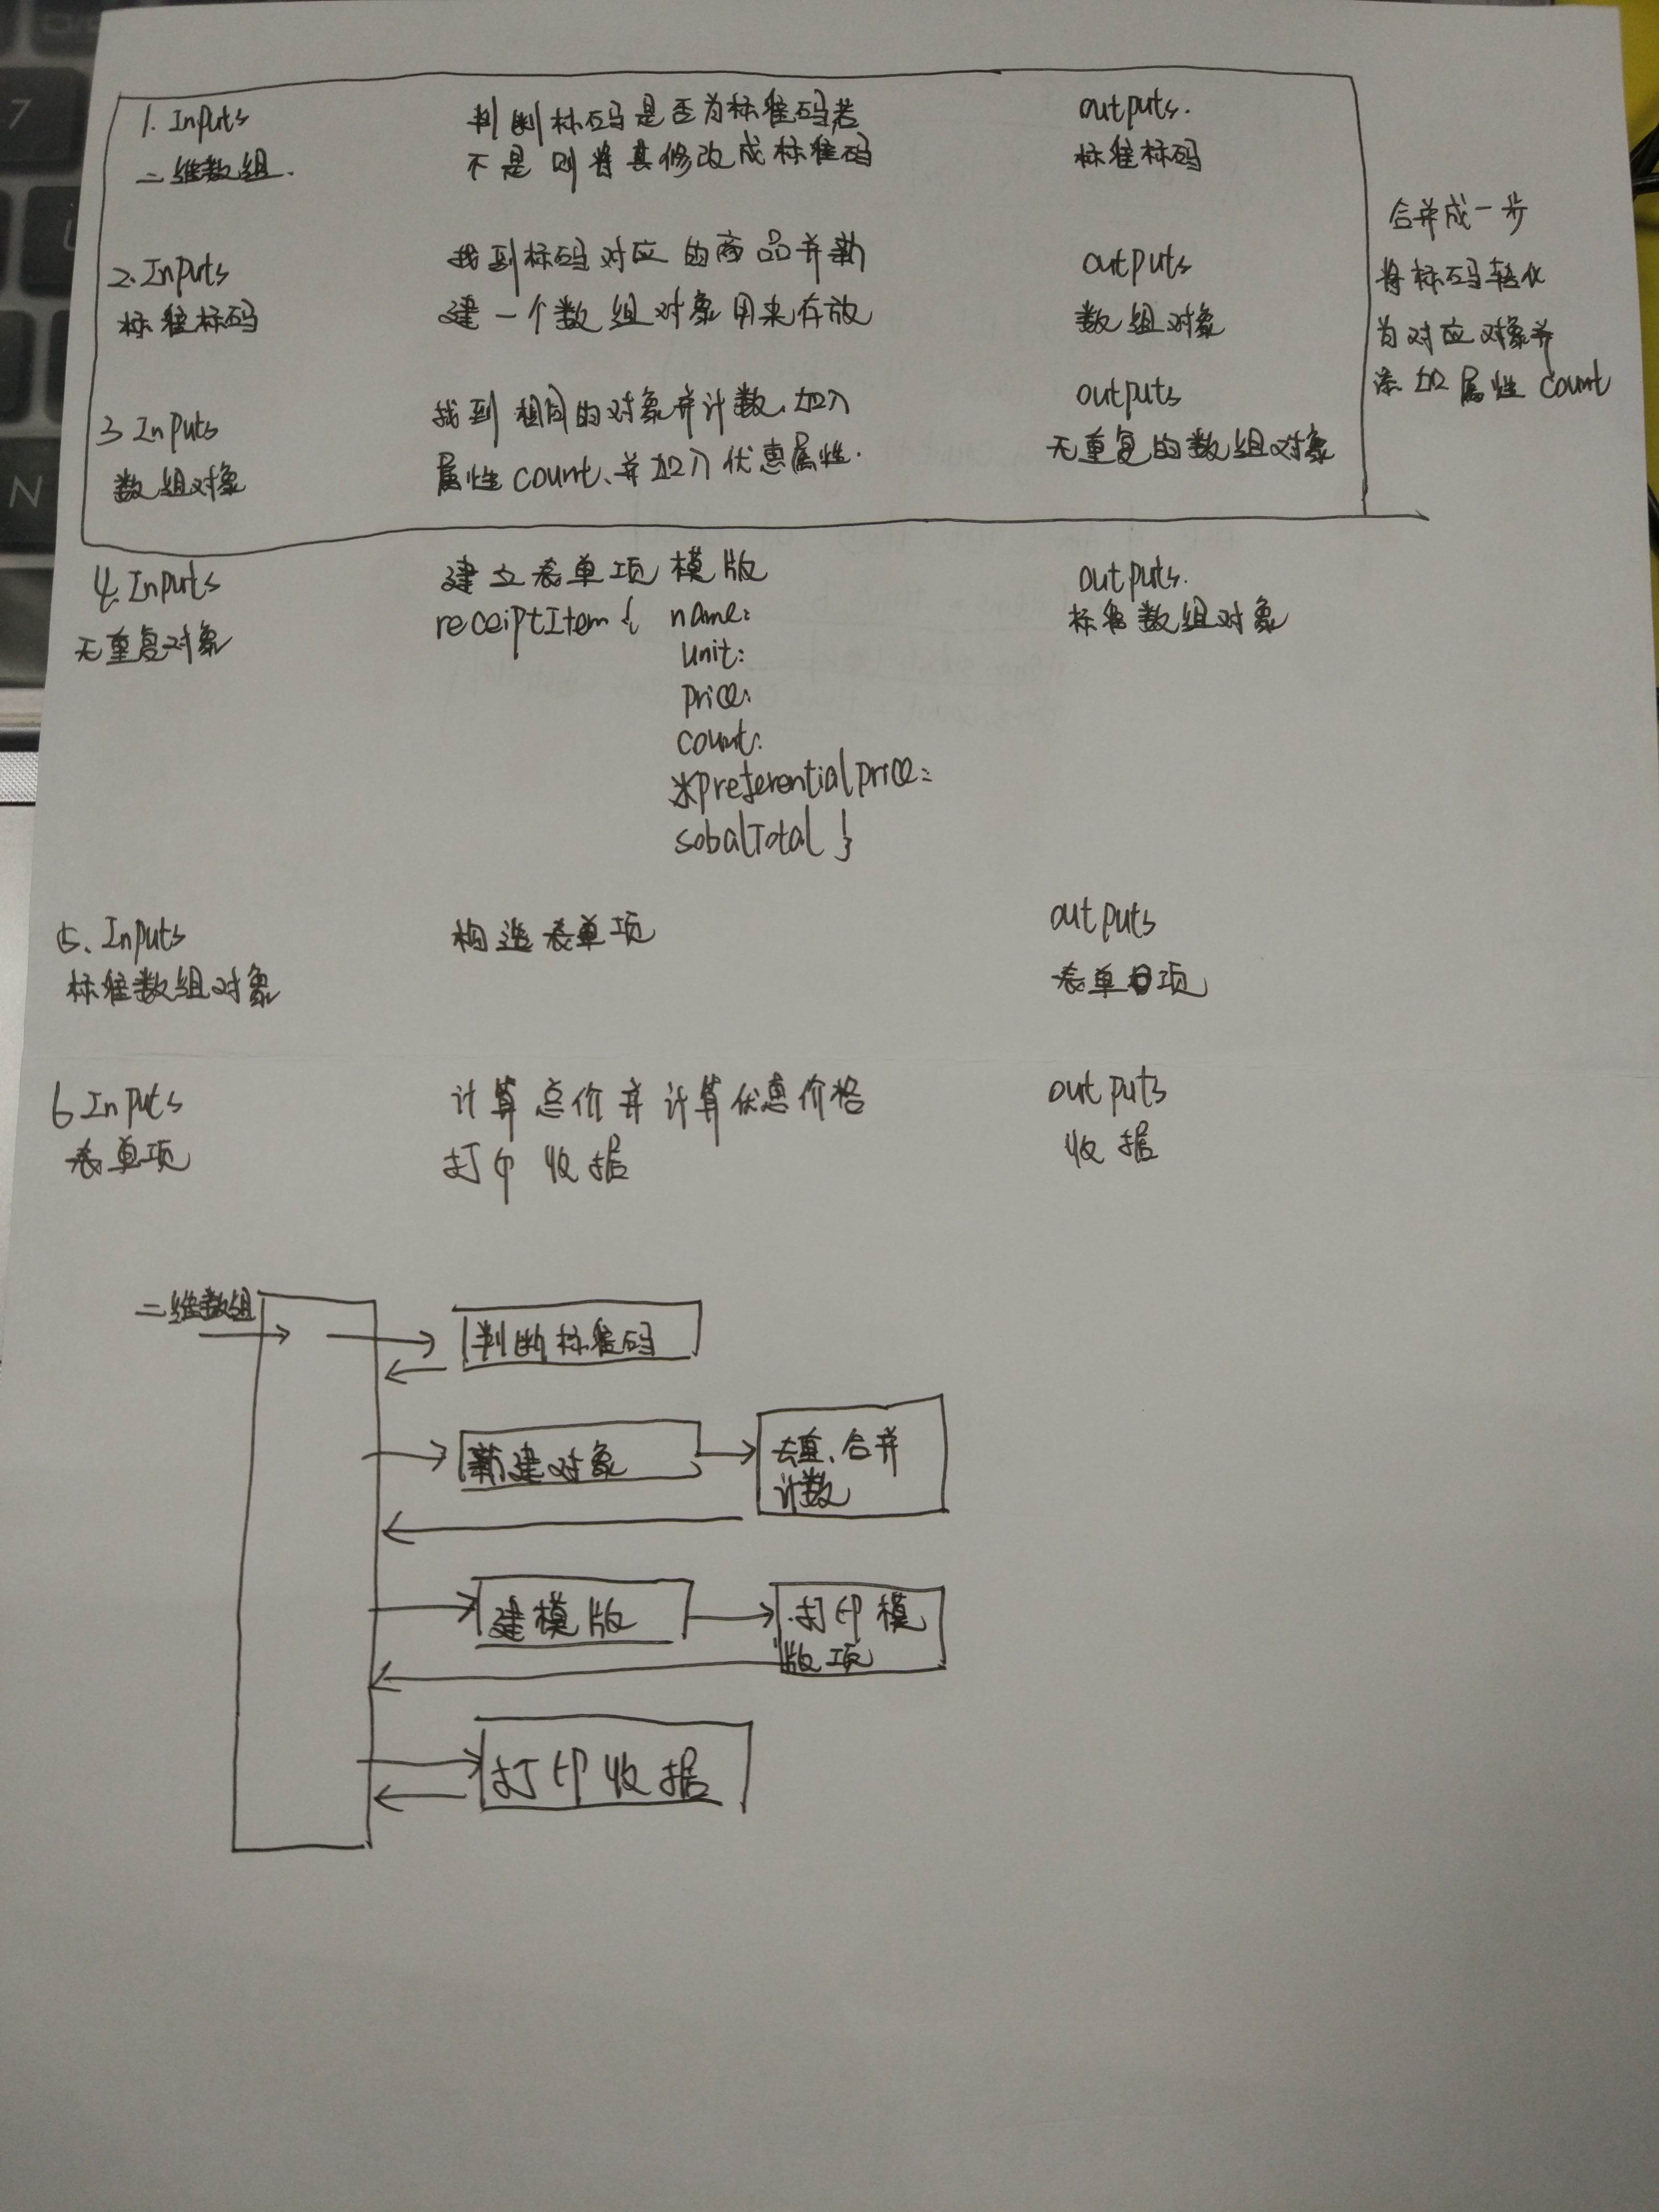 1. Inputs
二维数组.
判断标码是否为标准码若
不是则将其修改成标准码
outputs.
标准标码
2. Inputs
标准标码
找到标码对应的商品并新
建一个数组对象用来存放
outputs
数组对象
3 Inputs
数组对象
找到相同的对象并计数、加入
属性count、并加入优惠属性.
outputs
无重复的数组对象
合并成一步
将标码转化
为对应对象并
添加属性count
4. Inputs
无重复对象
建立表单项模版
receiptItem { name:
unit:
price:
count:
*preferentialprice:
sobalTotal }
outputs.
标准数组对象
5、Inputs
标准数组对象
构造表单项
outputs
表单项
6 Inputs
表单项
计算总价并计算优惠价格
打印收据
outputs
收据
二维数组
判断标准码
新建对象
去重、合并
计数
建模版
打印模
版项
打印收据
7
N